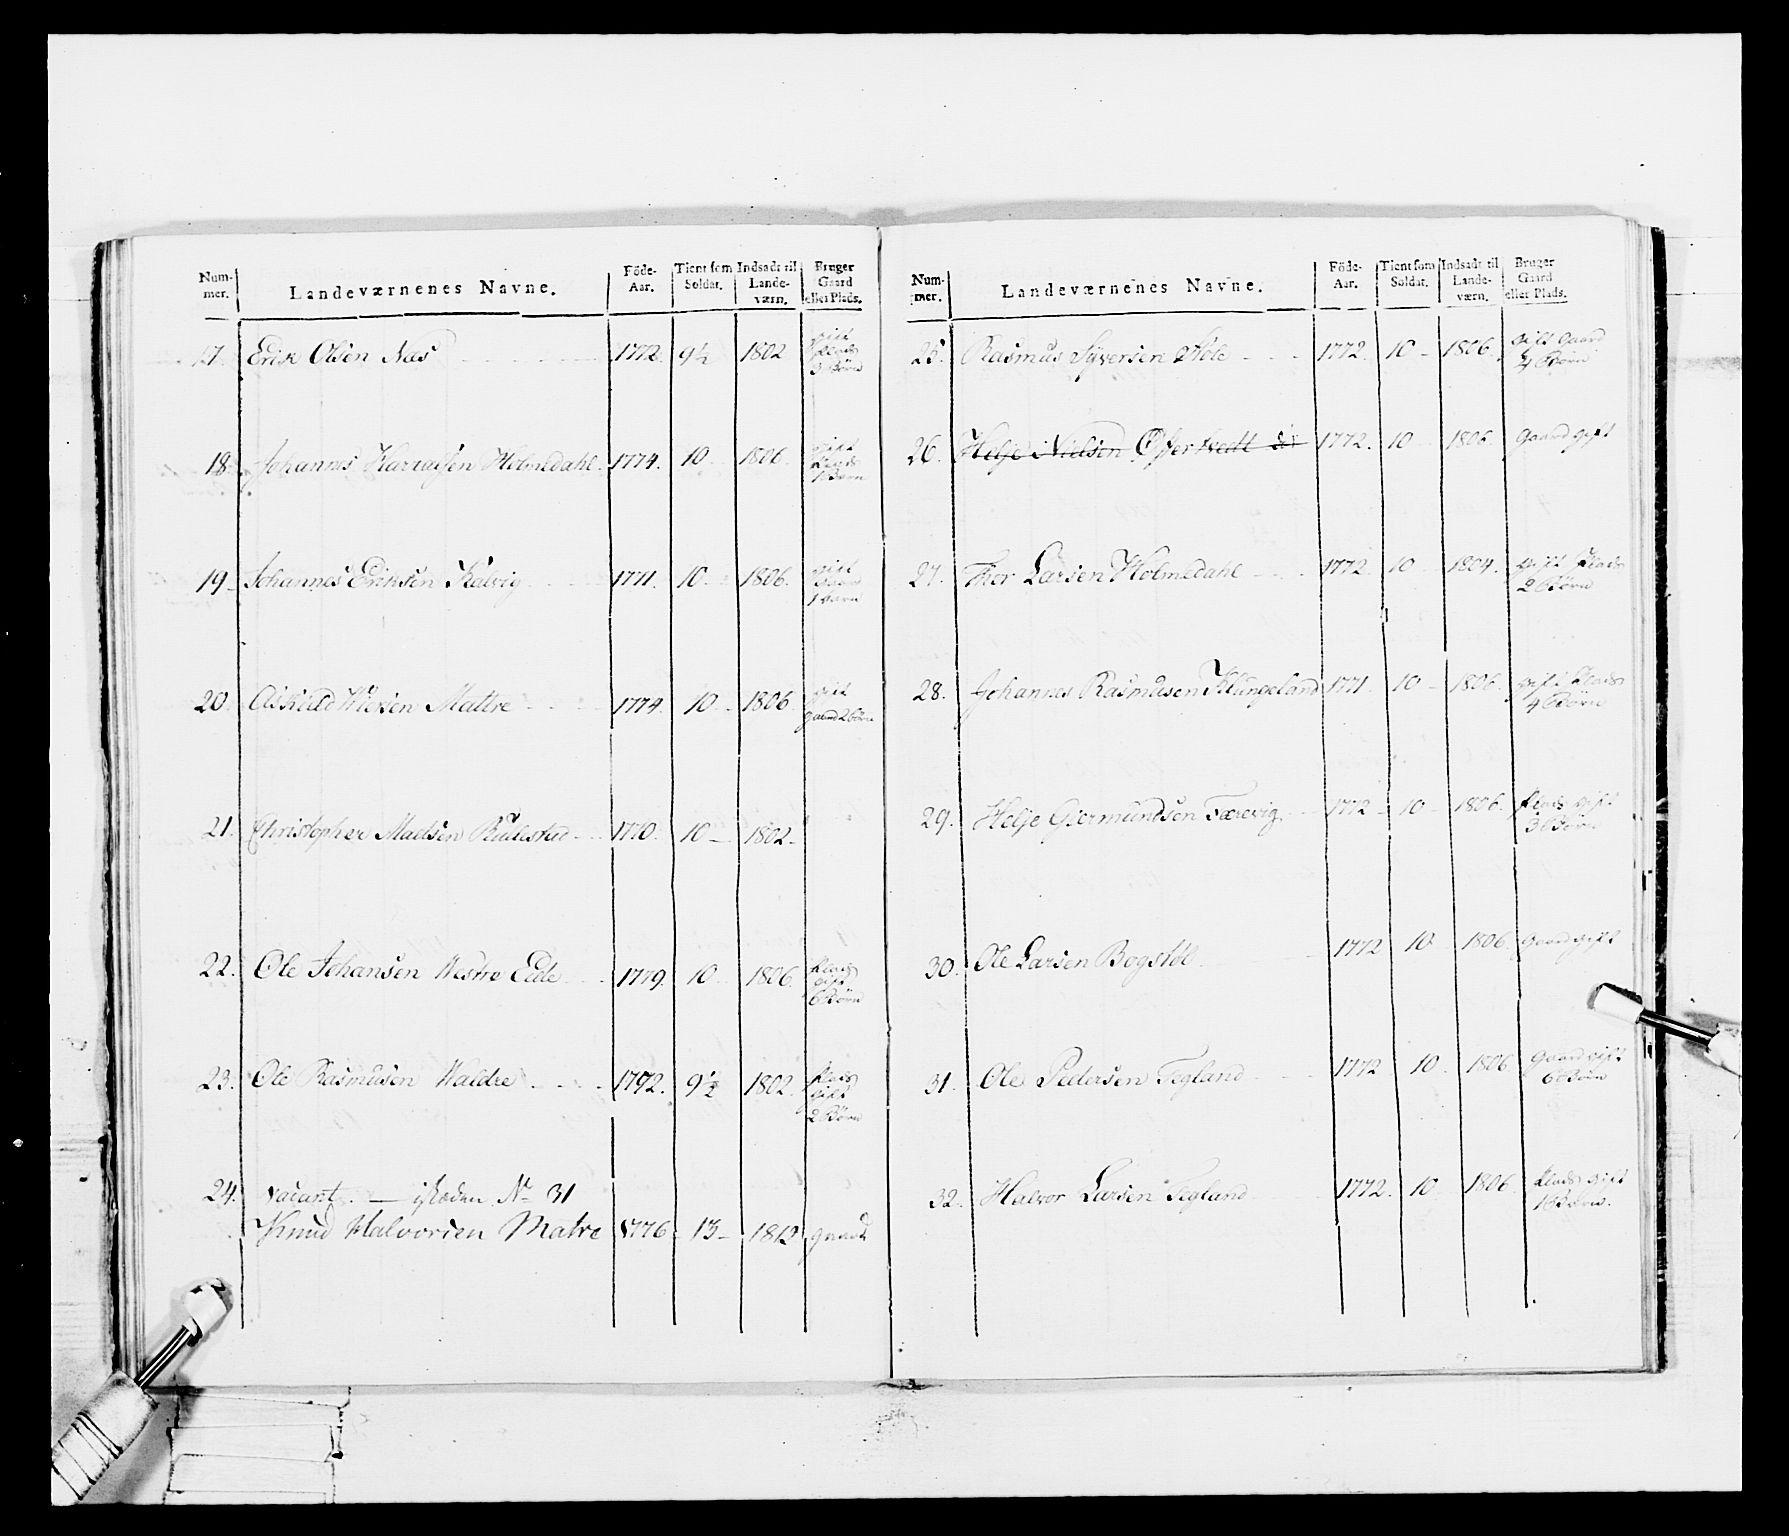 Num-mer. Landeværnenes Navne. Föde-Aar. Tient som Soldat. Indsadt til Lande-værn. Bruger Gaard eller Plads.
17. Erik Olsen Næs 1772. 9½ 1802 gift Plads 3 Børn
18 Johannes Holmedahl. 1774. 10 1806. gift Plads 1 Barn
19 Johannes Eriksen Kalvig 1771. 10 1806. gift 1 Barn
20. Mattre 1774. 10 1806. gift gaard 2 Børn
21. Christopher Madsen 1770. 10 1802
22. Ole Johansen Westre Eide 1779. 10 1806. Plads gift 6 Børn
23. Ole Rasmusen Waldre 1772. 9½ 1802. Plads gift 2 Børn
24. vacant. — isteden No 31
Knud Halvorsen Matre 1776 13 1812 gaard
Num-mer. Landeværnenes Navne. Föde-Aar. Tient som Soldat. Indsadt til Lande-værn. Bruger Gaard eller Plads.
25. Rasmus Syversen Høle 1772. 10 1806. gift Gaard 4 Børn
26. Helje Nielsen 1772. 10 1806 Gaard gift
27. Thor Larsen Holmedahl 1772 10 1804. gift Plads 2 Børn
28. Johannes Rasmusen Klungeland 1771 10 1806. gift Plads 4 Børn
29. Helje Giermundsen Færevig 1772 10 1806. Plads gift 3 Børn
30. Ole Larsen Bogstøl 1772 10 1806. Gaard gift
31. Ole Pedersen Tegland 1772 10 1806 Gaard gift 6 Børn
32. Halvor Larsen Tegland 1772. 10 1806 Plads gift 1 Barn.